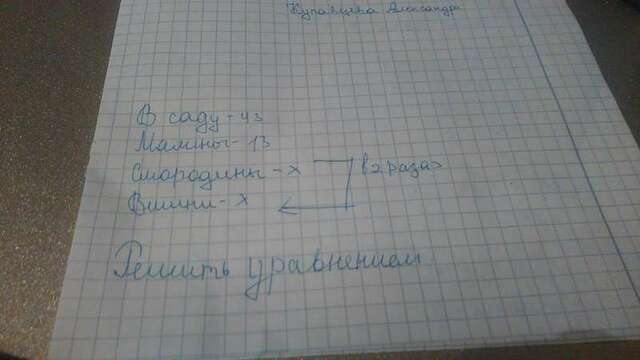 Купавцева Александра
В саду - 43
Малины - 13
Смородины - х
в 2 раза >
Вишни - х
Решить уравнением